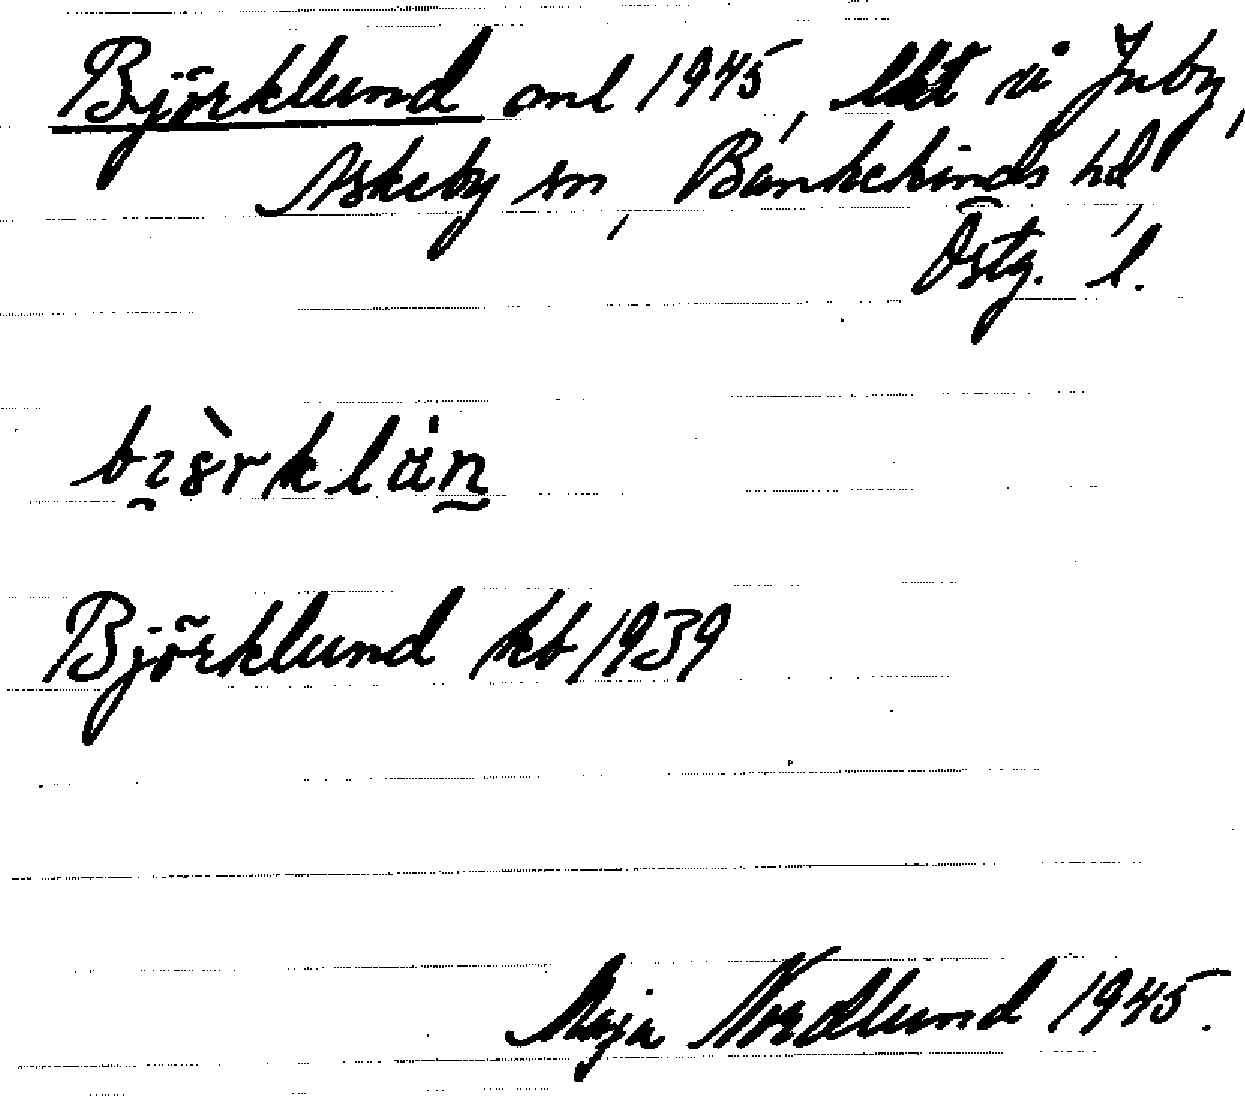 Björklund onl 1945, lht på Juby,
Askeby sn, Bankekinds hd,
Östg. l.
Björklund kb 1939
Maja Nordlund 1945.